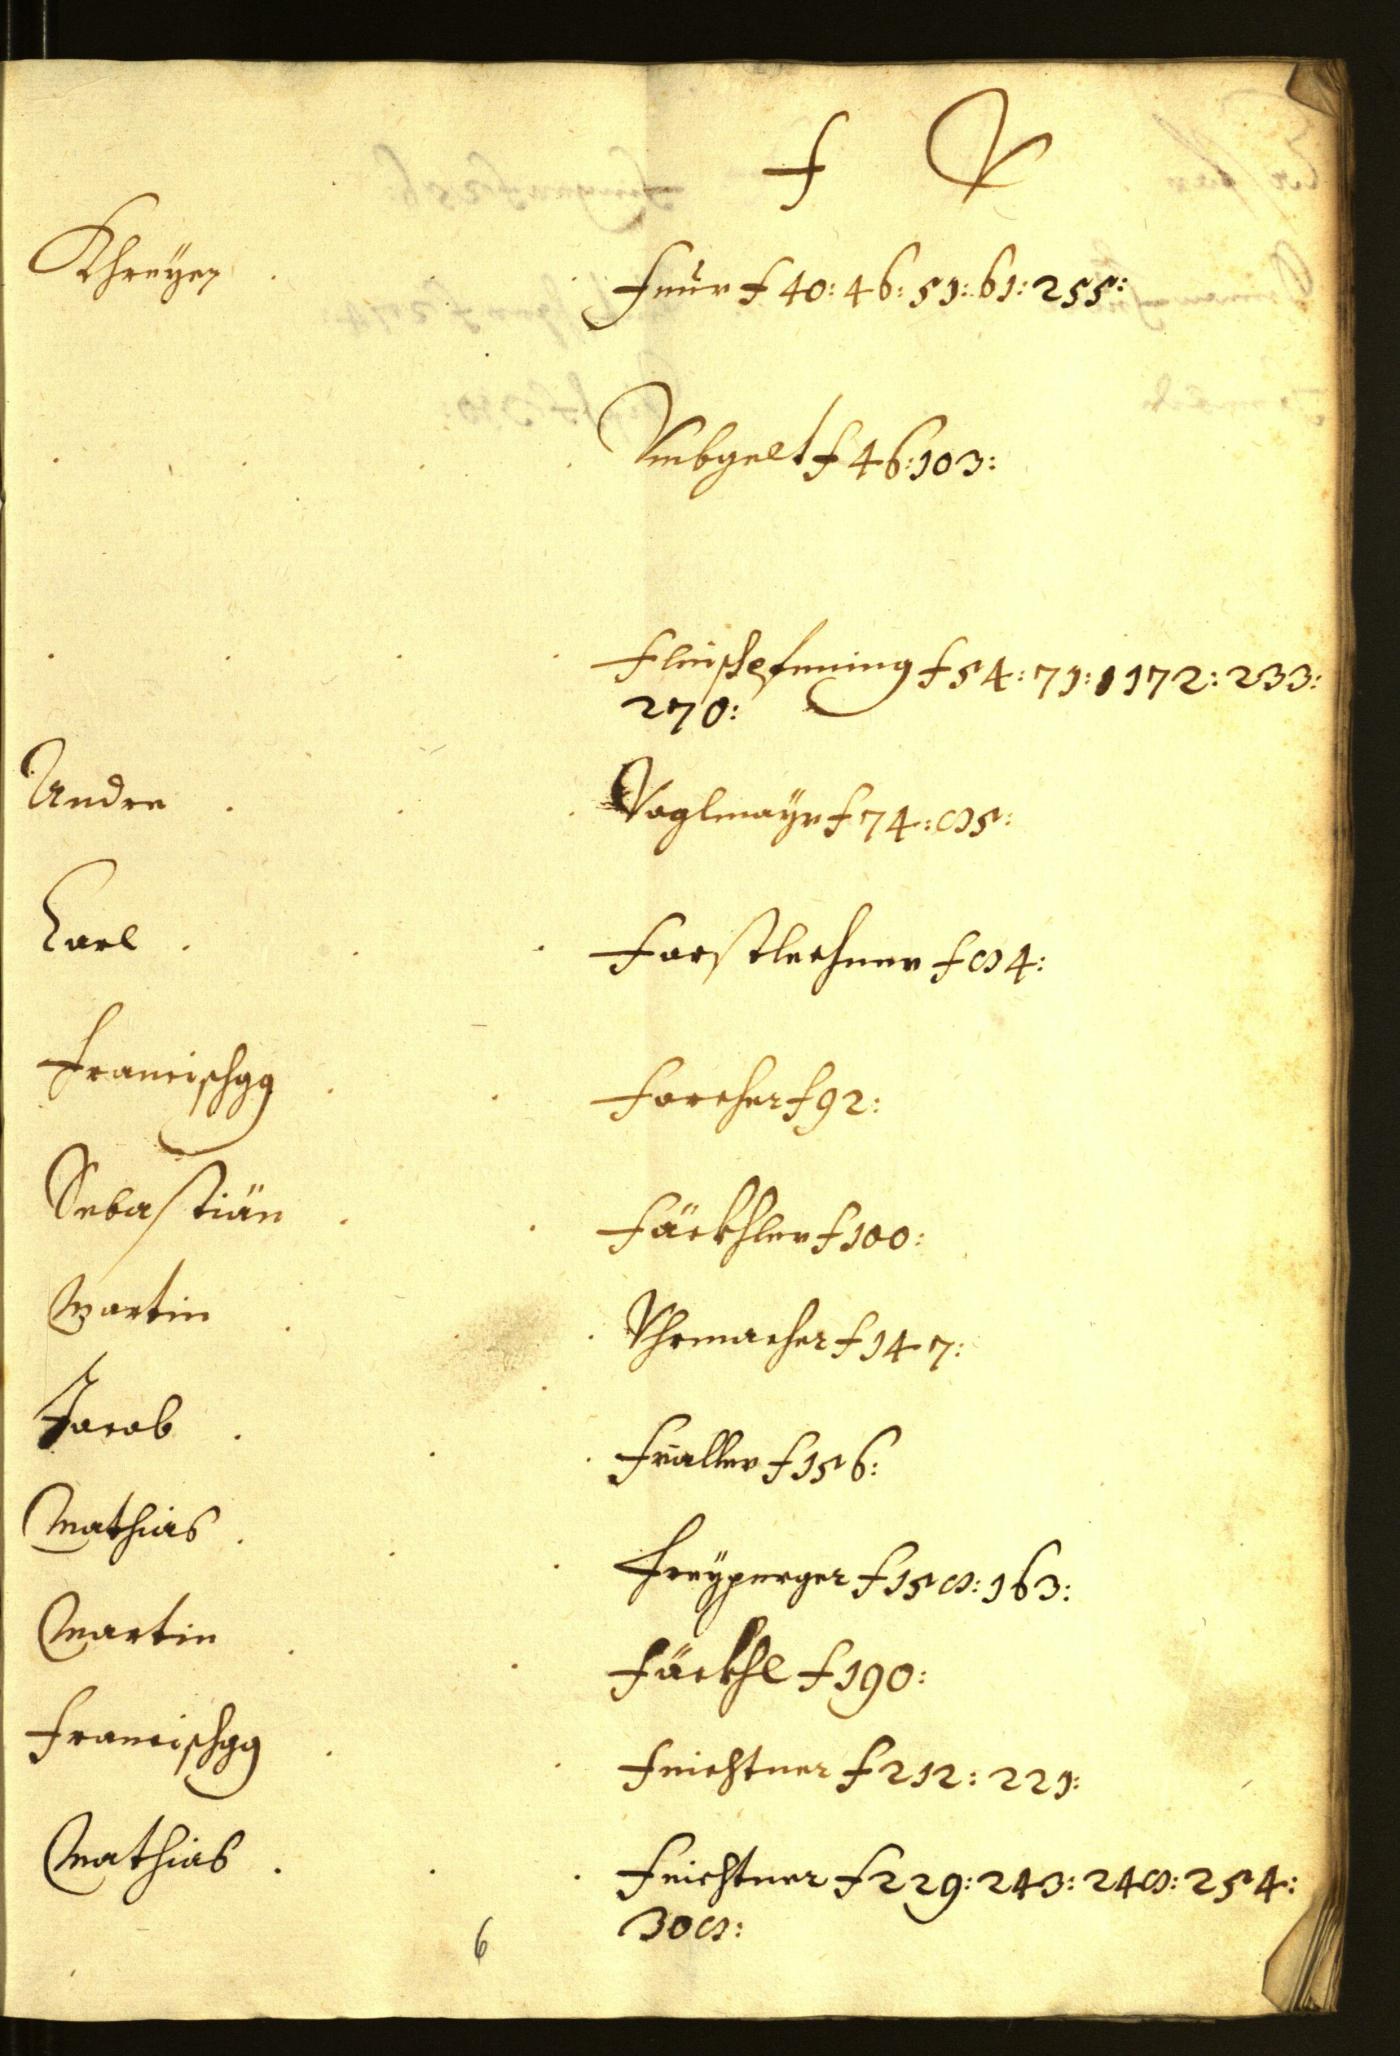 f V
Khreyez . . . Feur f 40: 46: 51: 61: 255:
. . . . Vmbgelt f 46: 103:
. . . . Fleischpfening f 54: 71: 172: 233:
270:
Andre . . . Voglmayr f 74: 85:
Carl . . . Forstlechner f 84:
Francischgg . . Forcher f 92:
Sebastian . . Fäckhler f 100:
Martin . . . Vhrmacher f 147:
Jacob . . . Fraller f 156:
Mathias . . . Freyperger f 158: 163:
Martin . . Fäckhl f 190:
Francischgg . . Feichtner f 212: 221:
Mathias . . . Feichtner f 229: 243: 248: 254:
308:
6